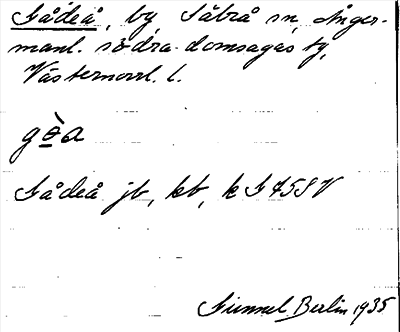 Gådeå, by, Säbrå sn, Ånger-
manl. södra domsagas tg,
Västernorrl. l.
gɵ̀a
Gådeå jb, kb, k
Gunnel Berlin 1935